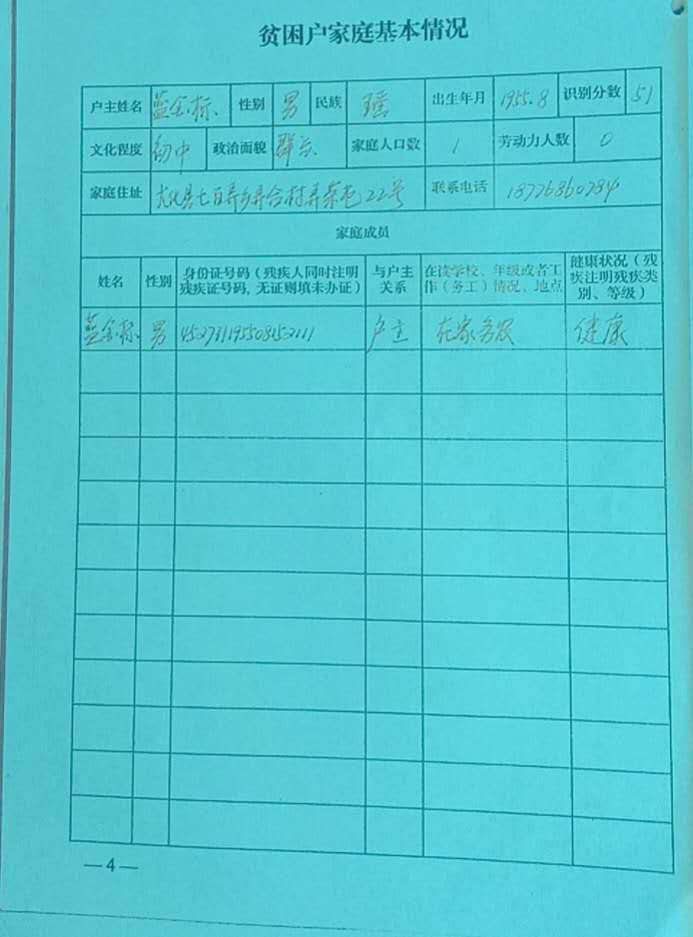 贫困户家庭基本情况
户主姓名 蓝金标 性别 男 民族 瑶 出生年月 1955.8 识别分数 51
文化程度 初中 政治面貌 群众 家庭人口数 1 劳动力人数 0
家庭住址 大化县七百弄乡弄合村弄菜屯22号 联系电话 18776860784
家庭成员
姓名 性别 身份证号码（残疾人同时注明 与户主 在读学校、年级或者工 健康状况（残
残疾证号码，无证则填未办证） 关系 作（务工）情况、地点 疾注明残疾类
别、等级）
蓝金标 男 452731195508152111 户主 在家务农 健康
—4—